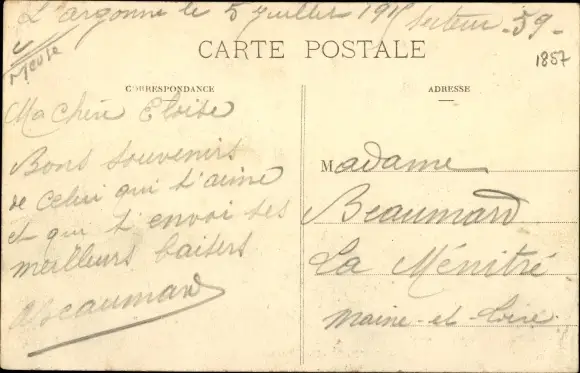 L'argonne le 5 juillet 191 Secteur - 59 -
Meuse
1857
CARTE POSTALE
CORRESPONDANCE
ADRESSE
Ma Chère Eloise
Bons souvenirs
de celui qui t'aime
et qui t'envoi ses
meilleurs baisers
Beaumard
Madame
Beaumard
La Ménitré
Maine-et-Loire.